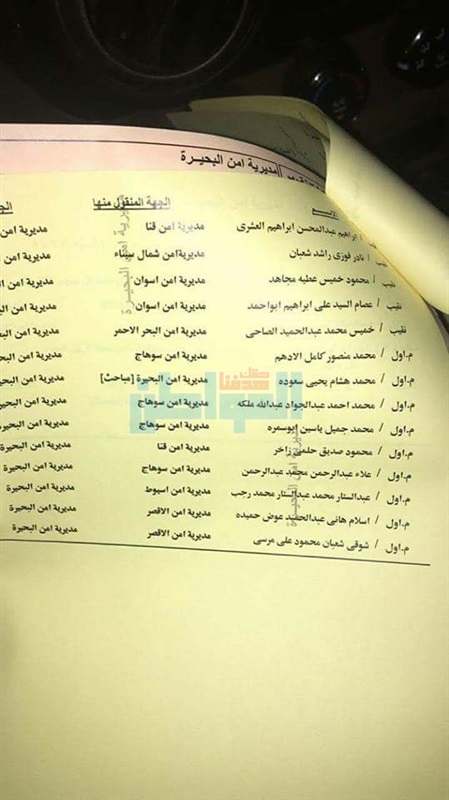 مديرية امن البحيرة
الجهة المنقول منها
ابراهيم عبدالمحسن ابراهيم العشرى مديرية امن قنا
/ نادر فوزى راشد شعبان مديرية امن شمال سيناء مديرية امن
نقيب / محمود خميس عطيه مجاهد مديرية امن اسوان مديرية امن
نقيب / عصام السيد على ابراهيم ابواحمد مديرية امن اسوان مديرية امن
نقيب / خميس محمد عبدالحميد الصاحى مديرية امن البحر الاحمر مديرية امن
م.اول / محمد منصور كامل الادهم مديرية امن سوهاج مديرية امن
م.اول / محمد هشام يحيى سعوده مديرية امن البحيرة [مباحث] مديرية امن
م.اول / محمد احمد عبدالجواد عبدالله ملكه مديرية امن سوهاج مديرية امن
م.اول / محمد جميل ياسين ابوسمره مديرية امن سوهاج مديرية امن
م.اول / محمود صديق حلمى زاخر مديرية امن قنا مديرية امن البحيرة
م.اول / علاء عبدالرحمن محمد عبدالرحمن مديرية امن سوهاج مديرية امن البحيرة
م.اول / عبدالستار محمد عبدالستار محمد رجب مديرية امن اسيوط مديرية امن البحيرة
م.اول / اسلام هانى عبدالحميد عوض حميده مديرية امن الاقصر مديرية امن البحيرة
م.اول / شوقى شعبان محمود على مرسى مديرية امن الاقصر مديرية امن البحيرة
مديرية امن البحيرة